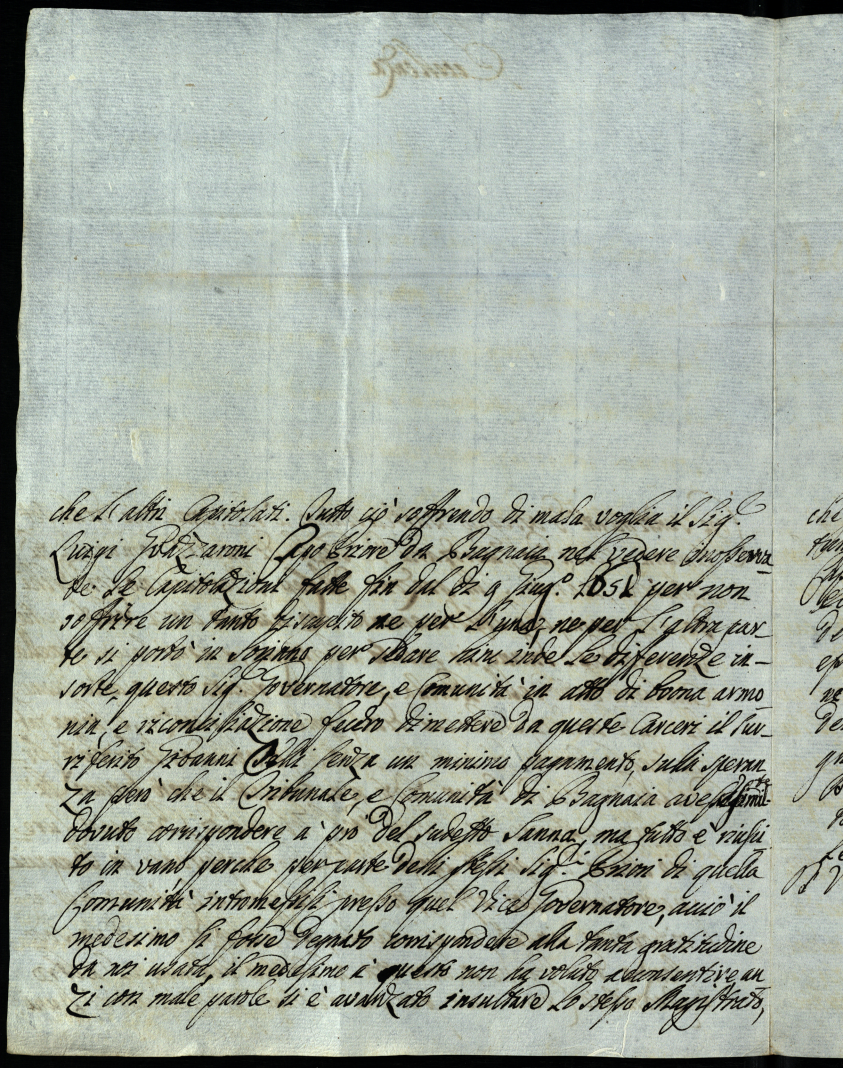 che l'altri Capitolati. Tutto ciò soffrendo di mala voglia il Sig.r
Luigi Capo Priore da Bagnaia nel vedere inosserva-
te le Capitolazioni fatte fin dal dì 9 Giug.o 1651 per non
soffrire un tanto ne per l'una, ne per l'altra par-
te si portò in per sedare hinc inde le differenze in-
sorte, questo Sig.r Governatore, e Comunità in atto di buona armo
nia, e riconciliazione fecero dimettere da queste Carceri il sur-
riferito Giovanni senza un minimo pagamento, sulla speran-
za però che il Tribunale, e Comunità di Bagnaia avesse
dovuto corrispondere à prò del sudetto Sanna, ma tutto è riusci-
to in vano perche per parte delli stessi Sig.ri Priori di quella
Comunità intromessisi presso quel Vice Governatore, acciò il
medesimo si fosse degnato corrispondere alla tanta gratitudine
da noi usata, il medesimo à questo non ha voluto acconsentire an
zi con male parole si è avanzato insultare lo stesso Magistrato,